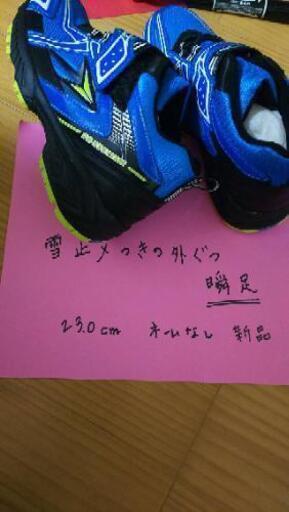 雪止メつきの外ぐつ
瞬足
23.0cm ネームなし 新品